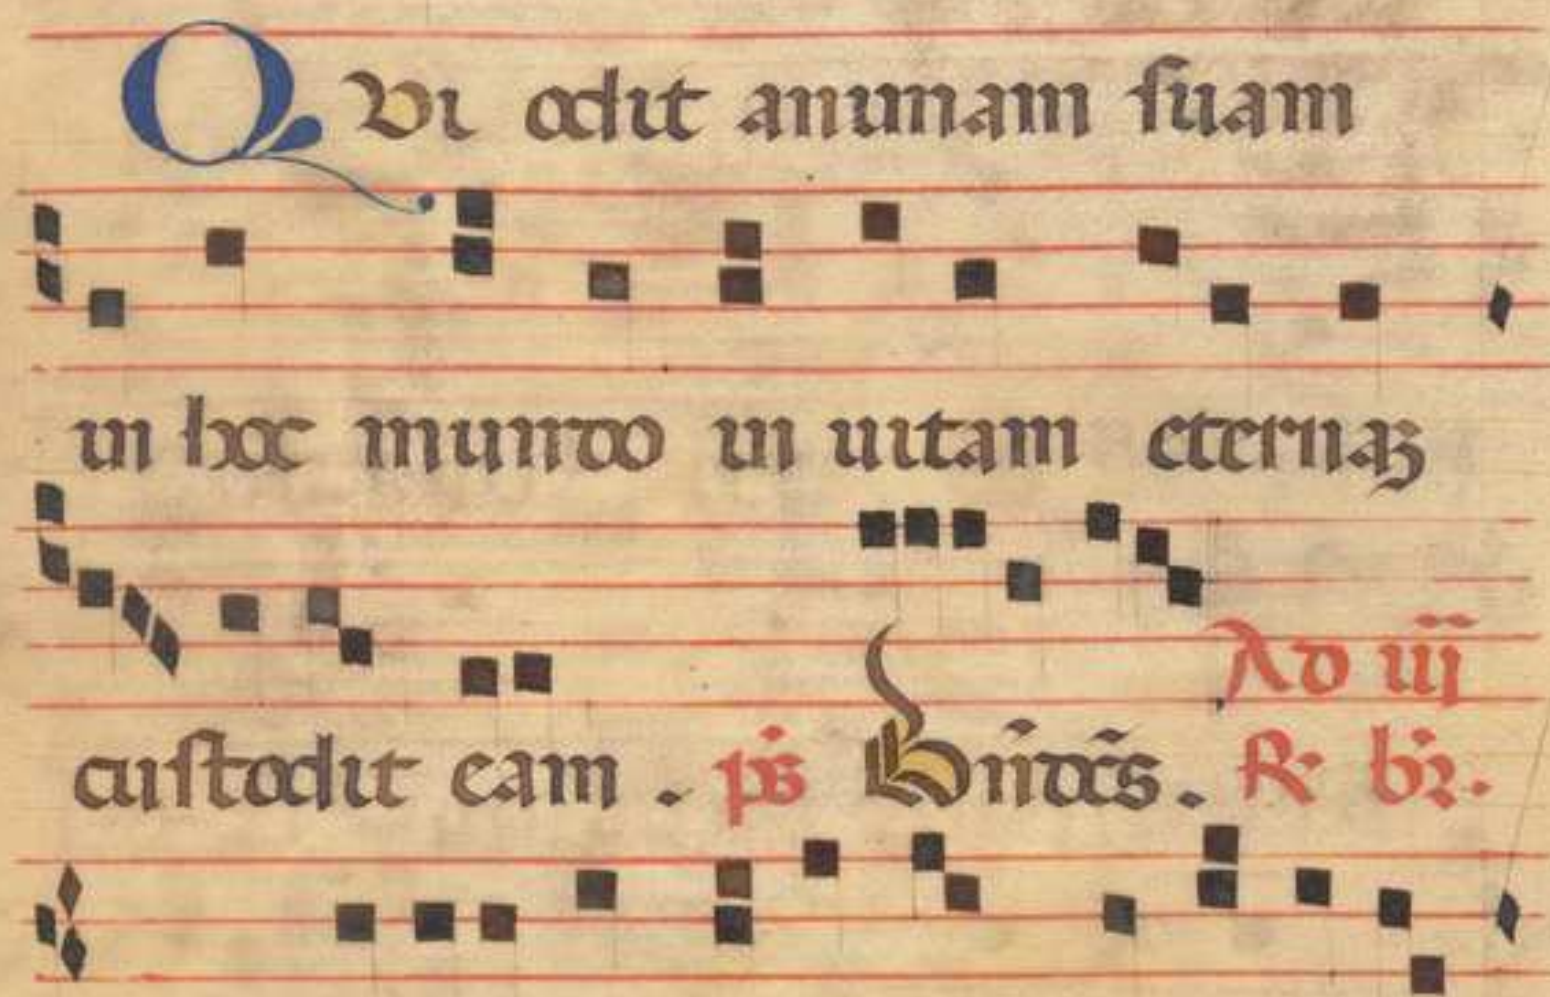 QVi odit animam suam
in hoc mundo in uitam eternaʒ
custodit eam . ps̄ Bn̄dcs̄ . Ad iij
R br̄ .